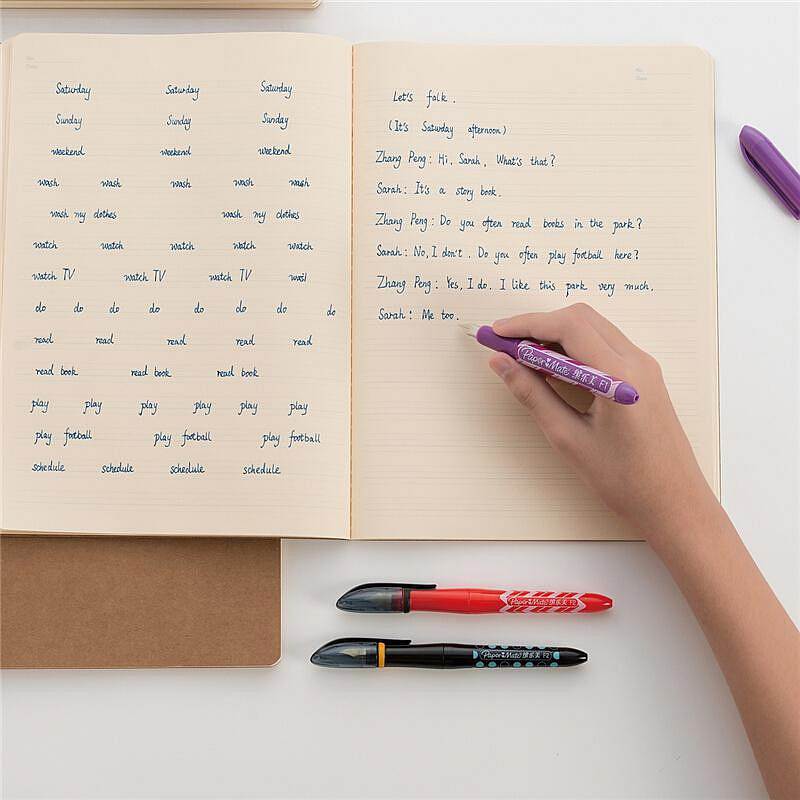 Saturday Saturday Saturday
Sunday Sunday Sunday
weekend weekend weekend
wash wash wash wash wash
wash my clothes wash my clothes
watch watch watch watch watch
watch TV watch TV watch TV wash
do do do do do do do do
read read read read read
read book read book read book
play play play play play play
play football play football play football
schedule schedule schedule schedule
Let's talk.
(It's Saturday afternoon)
Zhang Peng: Hi, Sarah, What's that?
Sarah: It's a story book.
Zhang Peng: Do you often read books in the park?
Sarah: No, I don't. Do you often play football here?
Zhang Peng: Yes, I do. I like this park very much.
Sarah: Me too.
Paper Mate 缤乐美 F1
Paper Mate 缤乐美 F2
Paper Mate 缤乐美 F2